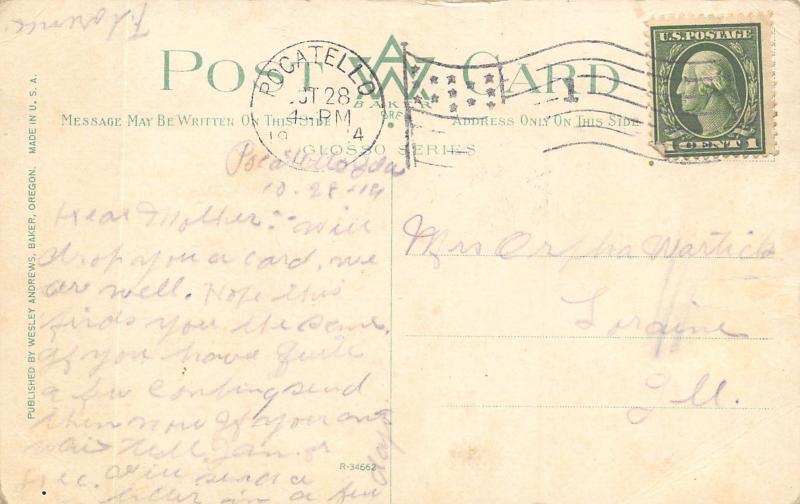 Florence
POST CARD
AWA
BAKER
ORE.
MESSAGE MAY BE WRITTEN ON THIS SIDE
ADDRESS ONLY ON THIS SIDE
GLOSSO SERIES
POCATELLO
OCT 28
PM
U.S. POSTAGE
1 CENT 1
PUBLISHED BY WESLEY ANDREWS, BAKER, OREGON. MADE IN U. S. A.
Pocatello Ida
10-28-14
Dear Mother:- will
drop you a card. we
are well. Hope this
finds you the same.
If you have quite
a few send
them now If you are
wait till Jan or
Dec. will send a
letter in a few
days
Mrs Orpha
Loraine
Ill.
R-34662